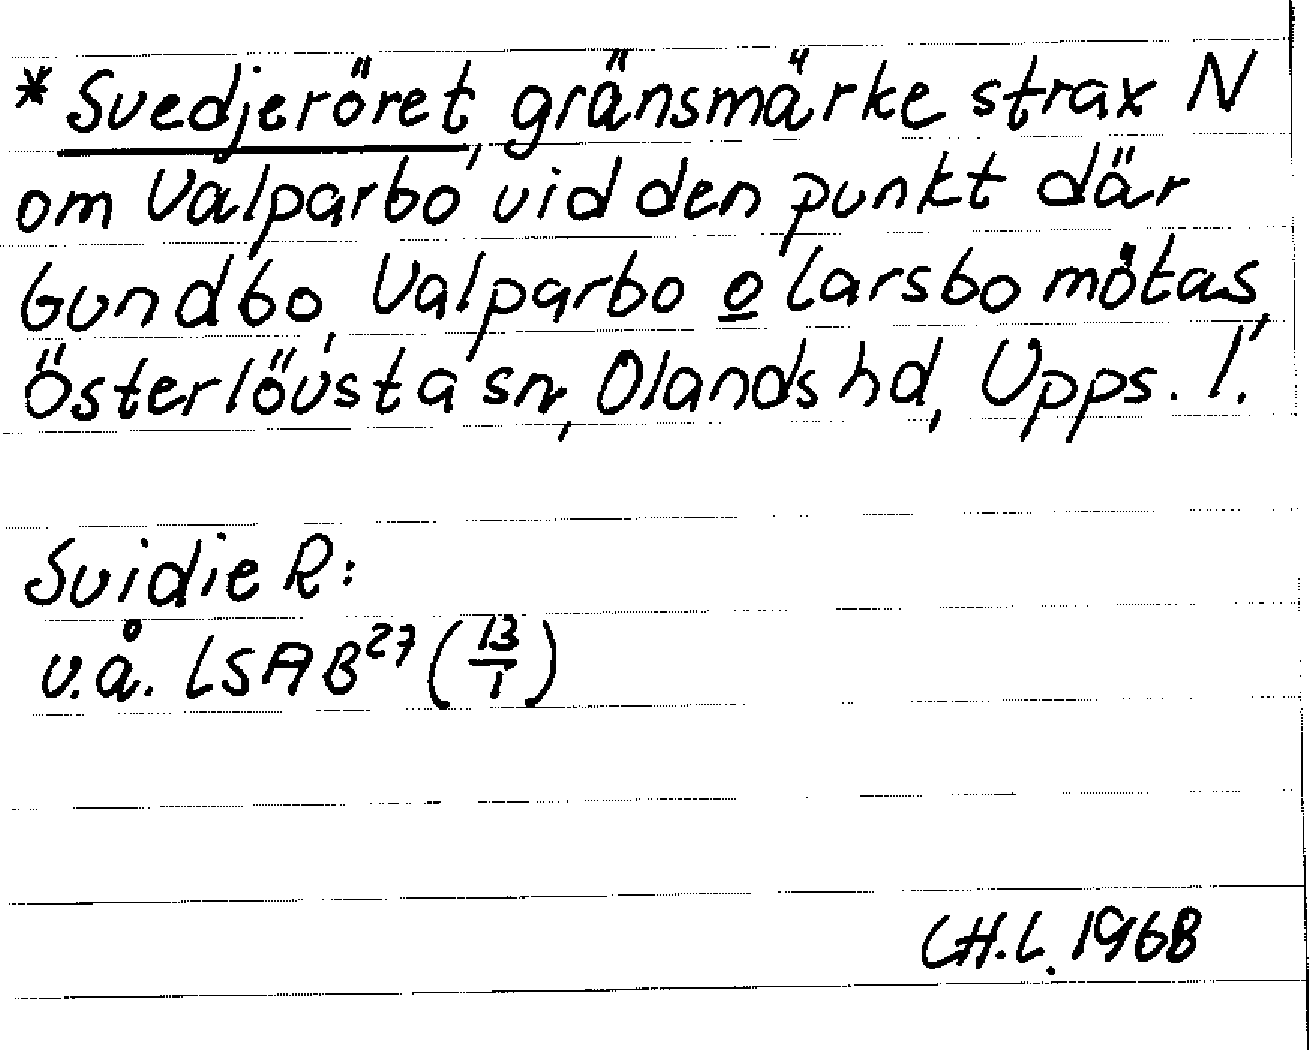 * Svedjeröret, gränsmärke strax N
om Valparbo vid den punkt där
Gundbo, Valparbo o Larsbo mötas,
Österlövsta sn, Olands hd, Upps. l.
Svidie R:
u.å. LSA B²⁷ (13/1)
CH.L. 1968